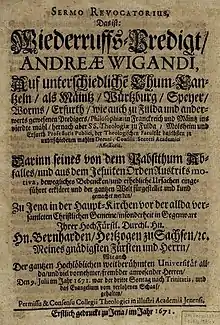 SERMO REVOCATORIUS,
Das ist:
Wiederruffs-Predigt/
ANDREÆ WIGANDI,
Auf unterschiedliche Thum-Can-
tzeln/ als Mäintz/ Würtzburg/ Speyer/
Worms/ Erffurt/ wie auch zu Fulda und ander-
werts gewesenen Predigers/ Philosophiæ in Franckreich und Mäintz ins
vierdte mahl/ hernach aber SS. Theologiæ zu Fulda/ Molsheim und
Erffurth Professoris Publici, der Theologischen Facultät daselbst zu
unterschiedenen mahlen Decani
Assessoris.
Darinn seines von dem Pabstthum Ab-
falles/ und aus dem Jesuiten Orden Austritts mo-
tiva, bewegliches Bedencken und erhebliche Uhrsachen einge-
führet erklärt und der gantzen Welt fürgestellet und kund
gemachet werden/
Zu Jena in der Haupt-Kirchen vor der allda ver-
samleten Christlichen Gemeine/ insonderheit in Gegenwart
Ihrer HochFürstl. Durchl. Hn.
Hn. Bernharden/ Hertzogen zu Sachsen/ ꝛc.
Meines gnädigsten Fürsten und Herrn/
Wie auch
Der gantzen Hochlöblichen weitberühmten Universität all-
da/ und viel vornehmer/ frembder anwesender Herren/
Den 9. Julii im Jahr 1671. war der dritte Sontag nach Trinitatis, und
das Evangelium vom verlohrnen Schaaf
gehalten.
Permissu & Consensu Collegii Theologici in illustri Academiâ Jenensi.
Erstlich gedruckt zu Jena/ im Jahr 1671.